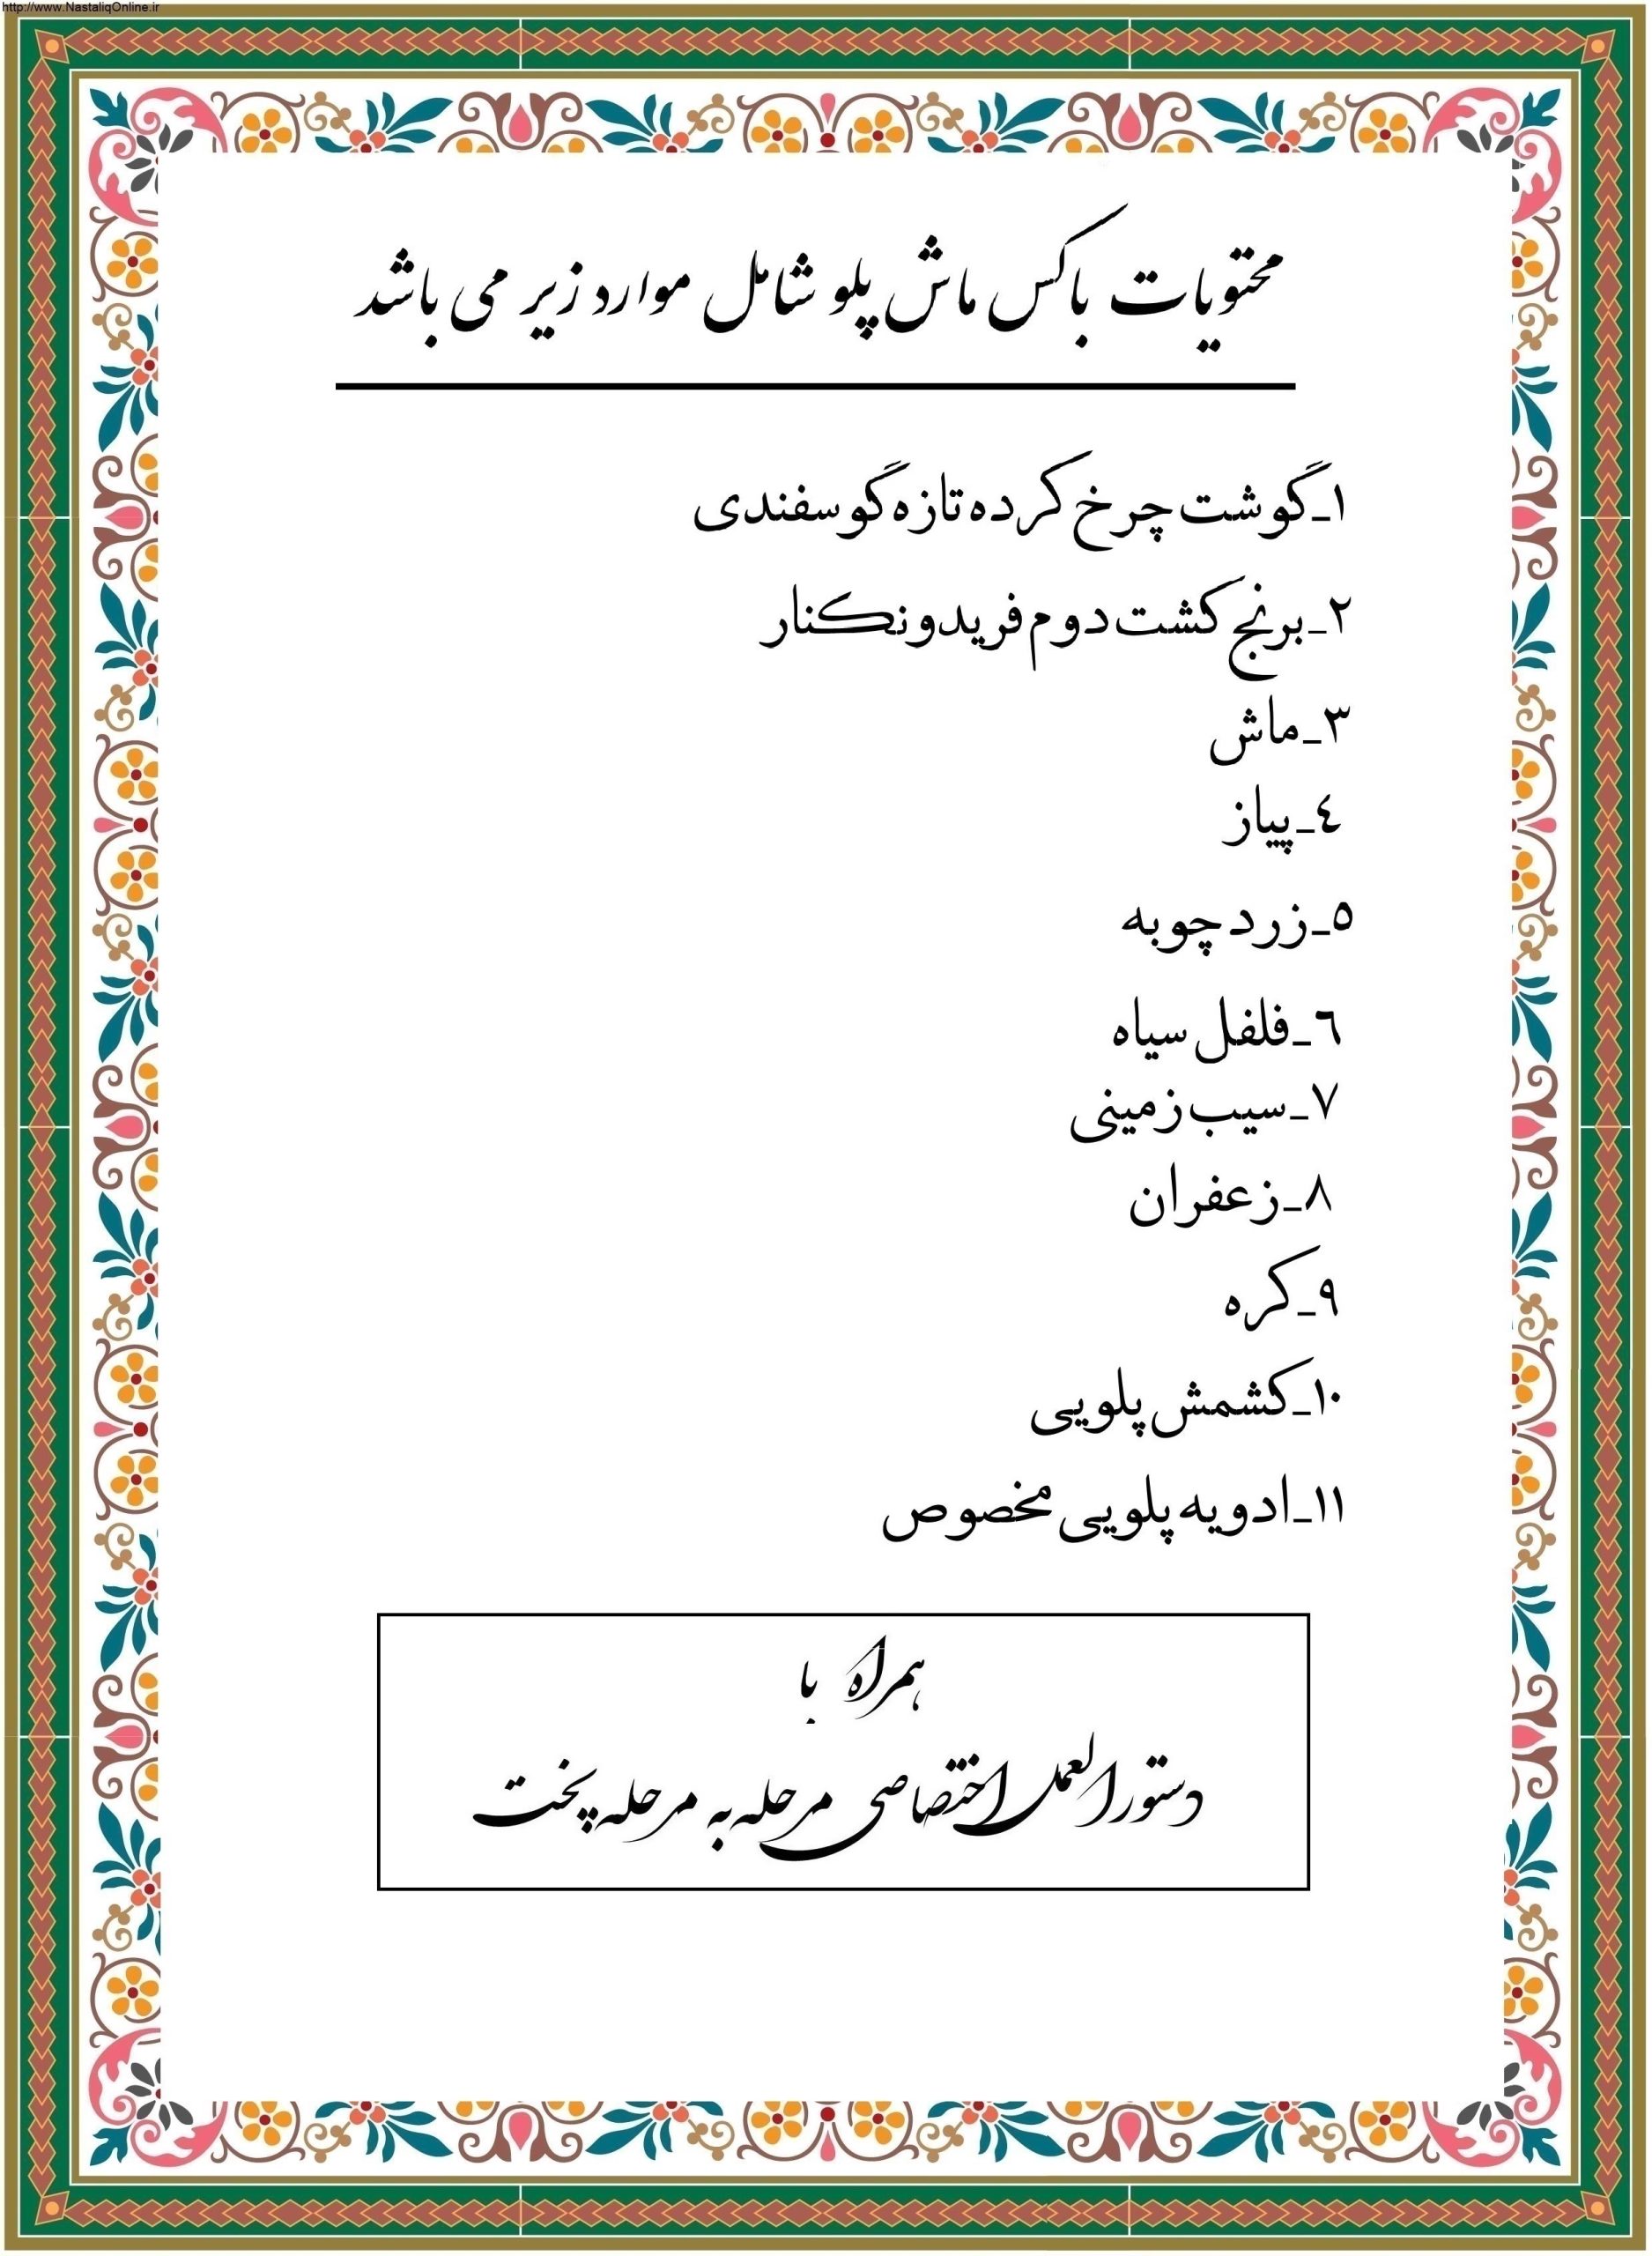 http://www.NastaliqOnline.ir
محتویات باکس ماش پلو شامل موارد زیر می باشد
۱_گوشت چرخ کرده تازه گوسفندی
۲_برنج کشت دوم فریدونکنار
۳_ماش
٤_پیاز
٥_زردچوبه
٦_فلفل سیاه
۷_سیب زمینی
۸_زعفران
۹_کره
۱۰_کشمش پلویی
۱۱_ادویه پلویی مخصوص
همراه با
دستورالعمل اختصاصی مرحله به مرحله پخت